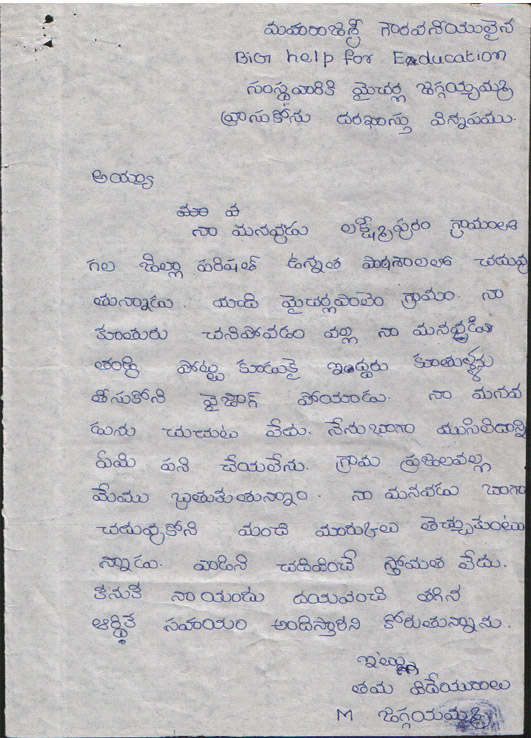 మహారాజశ్రీ గౌరవనీయులైన
BiG help for Education
సంస్థవారికి మైచర్ల జగ్గయ్యమ్మ
వ్రాసుకోను దరఖాస్తు విన్నపము.
అయ్యా
నా మనవడు లక్ష్మీపురం గ్రామంలో
గల జిల్లా పరిషత్ ఉన్నత పాఠశాలలో చదువు
తున్నాడు. మాది మైచర్లపాలెం గ్రామం. నా
కుమారుడు చనిపోవడం వల్ల నా మనవడిని
తండ్రి పొట్ట కూడుకై ఇద్దరు కూతుళ్ళను
తీసుకోని వైజాగ్ పోయాడు. నా మనవ
డును చుచుట లేదు. నేను బాగా ముసలిదాన్ని
ఏమి పని చేయలేను. గ్రామ ప్రజలవల్ల
మేము బ్రతుకుతున్నాం. నా మనవడు బాగా
చదువుకోని మంచి మార్కులు తెచ్చుకుంటు
న్నాడు. వాడిని చదివించే స్తోమత లేదు.
కనుక నా యందు దయవుంచి తగిన
ఆర్ధిక సహయం అందిస్తారని కోరుతున్నాను.
ఇట్లు
తమ విదేయురాలు
M జగ్గయమ్మ